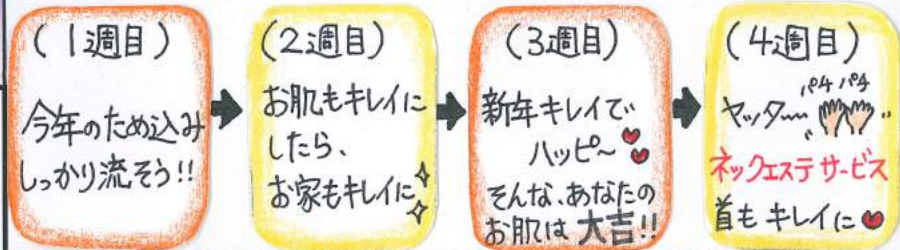 (1週目)
今年のため込み
しっかり流そう!!
(2週目)
お肌もキレイに
したら、
お家もキレイに
(3週目)
新年キレイで
ハッピ〜
そんな、あなたの
お肌は大吉!!
(4週目)
パチパチ
ヤッター
ネックエステサービス
首もキレイに